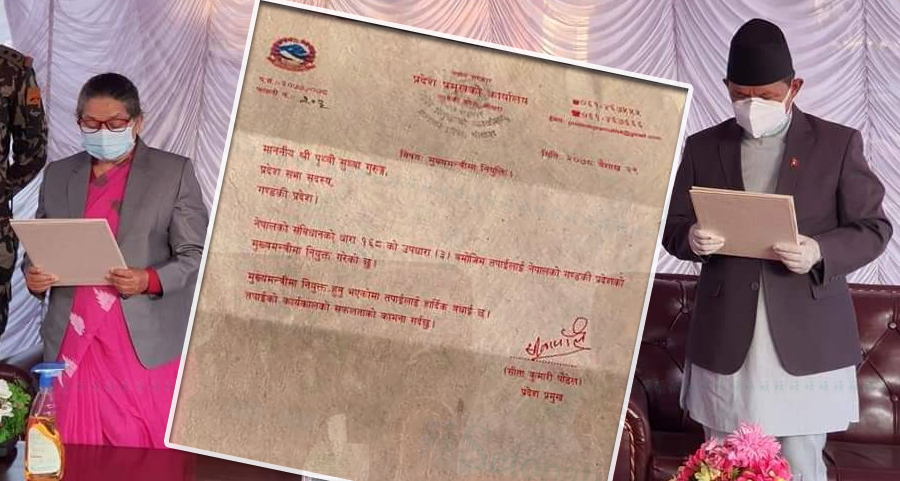 प्रदेश प्रमुखको कार्यालय
प.सं. २०७७/०७८
मिति: २०७८ बैशाख २९
विषय: मुख्यमन्त्रीमा नियुक्ति।
माननीय श्री पृथ्वी सुब्बा गुरुङ,
प्रदेश सभा सदस्य,
गण्डकी प्रदेश।
नेपालको संविधानको धारा १६८ को उपधारा (३) बमोजिम तपाईंलाई नेपालको गण्डकी प्रदेशको
मुख्यमन्त्रीमा नियुक्त गरेको छु।
मुख्यमन्त्रीमा नियुक्त हुनु भएकोमा तपाईंलाई हार्दिक बधाई छ।
तपाईंको कार्यकालको सफलताको कामना गर्दछु।
(सीता कुमारी पौडेल)
प्रदेश प्रमुख